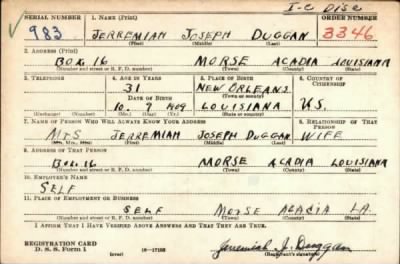 I-C Disc
SERIAL NUMBER 1. NAME (Print) ORDER NUMBER
983 JERREMIAH JOSEPH DUGGAN 3346
(First) (Middle) (Last)
2. ADDRESS (Print)
BOX 16 MORSE ACADIA LOUISIANA
(Number and street or R. F. D. number) (Town) (County) (State)
3. TELEPHONE 4. AGE IN YEARS 5. PLACE OF BIRTH 6. COUNTRY OF CITIZENSHIP
31 NEW ORLEANS
DATE OF BIRTH (Town or county)
10. 7 1909 LOUISIANA U.S.
(Exchange) (Number) (Mo.) (Day) (Yr.) (State or country)
7. NAME OF PERSON WHO WILL ALWAYS KNOW YOUR ADDRESS 8. RELATIONSHIP OF THAT PERSON
MRS JERREMIAH JOSEPH DUGGAN WIFE
(Mr., Mrs., Miss) (First) (Middle) (Last)
9. ADDRESS OF THAT PERSON
BOX 16 MORSE ACADIA LOUISIANA
(Number and street or R. F. D. number) (Town) (County) (State)
10. EMPLOYER'S NAME
SELF
11. PLACE OF EMPLOYMENT OR BUSINESS
SELF MORSE ACACIA LA.
(Number and street or R. F. D. number) (Town) (County) (State)
I AFFIRM THAT I HAVE VERIFIED ABOVE ANSWERS AND THAT THEY ARE TRUE.
REGISTRATION CARD
D. S. S. Form 1 (over) 16—17105 Jeremiah J. Duggan
(Registrant's signature)